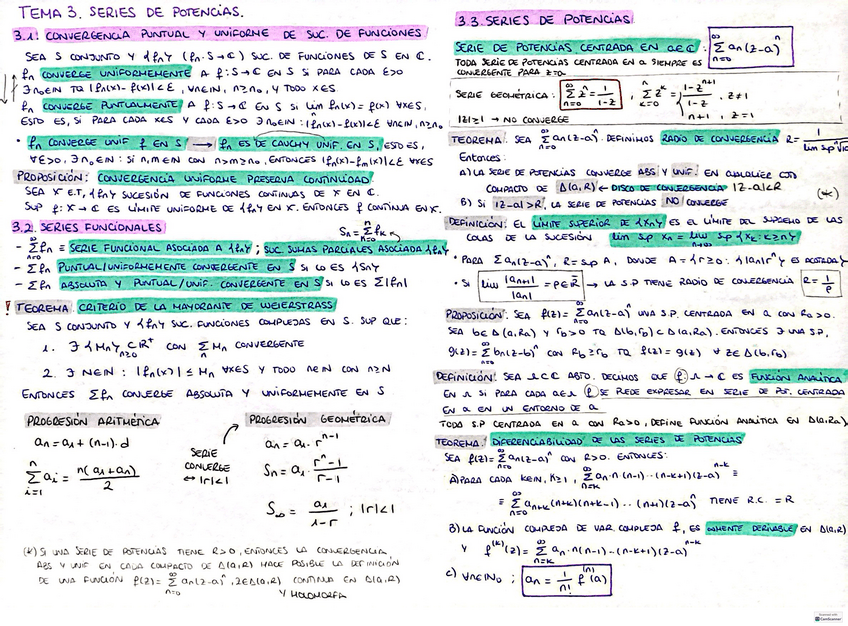 TEMA 3. SERIES DE POTENCIAS.
3.1. CONVERGENCIA PUNTUAL Y UNIFORME DE SUC. DE FUNCIONES
SEA S CONJUNTO Y {fn} (fn: S → ℂ) SUC. DE FUNCIONES DE S EN ℂ.
fn CONVERGE UNIFORMEMENTE A f: S → ℂ EN S SI PARA CADA ε>0
∃ n₀∈ℕ TQ |fn(x) - f(x)| < ε, ∀n∈ℕ, n≥n₀, Y TODO x∈S.
fn CONVERGE PUNTUALMENTE A f: S → ℂ EN S SI lim fn(x) = f(x) ∀x∈S,
ESTO ES, SI PARA CADA x∈S Y CADA ε>0 ∃ n₀∈ℕ: |fn(x) - f(x)| < ε ∀n∈ℕ, n≥n₀
• fn CONVERGE UNIF f EN S → fn ES DE CAUCHY UNIF. EN S, ESTO ES,
∀ε>0, ∃ n₀∈ℕ: SI n,m∈ℕ CON n>m≥n₀, ENTONCES |fn(x) - fm(x)| < ε ∀x∈S
PROPOSICIÓN: CONVERGENCIA UNIFORME PRESERVA CONTINUIDAD
SEA X E.T, {fn} SUCESIÓN DE FUNCIONES CONTINUAS DE X EN ℂ.
SUP f: X → ℂ ES LÍMITE UNIFORME DE {fn} EN X. ENTONCES f CONTINUA EN X.
3.2. SERIES FUNCIONALES
Sn = Σ fk
- Σ fn ≡ SERIE FUNCIONAL ASOCIADA A {fn}; SUC. SUMAS PARCIALES ASOCIADA {fn}
- Σ fn PUNTUAL/UNIFORMEMENTE CONVERGENTE EN S SI LO ES {Sn}
- Σ fn ABSOLUTA Y PUNTUAL/UNIF. CONVERGENTE EN S SI LO ES Σ|fn|
! TEOREMA: CRITERIO DE LA MAYORANTE DE WEIERSTRASS
SEA S CONJUNTO Y {fn} SUC. FUNCIONES COMPLEJAS EN S. SUP QUE:
1. ∃ {Mn} n≥0 ⊂ ℝ⁺ CON Σ Mn CONVERGENTE
2. ∃ N∈ℕ: |fn(x)| ≤ Mn ∀x∈S Y TODO n∈ℕ CON n≥N
ENTONCES Σfn CONVERGE ABSOLUTA Y UNIFORMEMENTE EN S
PROGRESIÓN ARITMÉTICA
an = a1 + (n-1)·d
Σ ai = n(a1+an)/2
SERIE CONVERGE ↔ |r|<1
PROGRESIÓN GEOMÉTRICA
an = a1·r^(n-1)
Sn = a1·(r^n - 1)/(r - 1)
S∞ = a1/(1-r) ; |r|<1
(*) SI UNA SERIE DE POTENCIAS TIENE R>0, ENTONCES LA CONVERGENCIA
ABS Y UNIF EN CADA COMPACTO DE Δ(a,R) HACE POSIBLE LA DEFINICIÓN
DE UNA FUNCIÓN f(z) = Σ an(z-a)^n, z∈Δ(a,R) CONTINUA EN Δ(a,R)
Y HOLOMORFA
3.3. SERIES DE POTENCIAS
SERIE DE POTENCIAS CENTRADA EN a∈ℂ: Σ an(z-a)^n
TODA SERIE DE POTENCIAS CENTRADA EN a SIEMPRE ES
CONVERGENTE PARA z=a
SERIE GEOMÉTRICA: Σ z^n = 1/(1-z), Σ z^k = { (1-z^(n+1))/(1-z), z≠1
n+1, z=1
|z|≥1 → NO CONVERGE
TEOREMA: SEA Σ an(z-a)^n. DEFINIMOS RADIO DE CONVERGENCIA R = 1/
Entonces:
A) LA SERIE DE POTENCIAS CONVERGE ABS Y UNIF. EN CUALQUIER CJTO
COMPACTO DE Δ(a,R) ← DISCO DE CONVERGENCIA |z-a|<R
B) SI |z-a|>R, LA SERIE DE POTENCIAS NO CONVERGE (*)
DEFINICIÓN: EL LÍMITE SUPERIOR DE {xn} ES EL LÍMITE DEL SUPREMO DE LAS
COLAS DE LA SUCESIÓN lim sup xn = lim sup {xk: k≥n}
• PARA Σ an(z-a)^n, R = sup A, DONDE A = {r≥0: {|an|r^n} ES ACOTADA}
• SI lim |an+1|/|an| = ρ∈ℝ → LA S.P TIENE RADIO DE CONVERGENCIA R = 1/ρ
PROPOSICIÓN: SEA f(z) = Σ an(z-a)^n UNA S.P. CENTRADA EN a CON Ra>0.
SEA b∈Δ(a,Ra) Y rb>0 TQ Δ(b,rb) ⊂ Δ(a,Ra). ENTONCES ∃ UNA S.P.
g(z) = Σ bn(z-b)^n CON Rb≥rb TQ f(z) = g(z) ∀ z∈Δ(b,rb)
DEFINICIÓN: SEA Ω⊂ℂ ABTO. DECIMOS QUE f: Ω → ℂ ES FUNCIÓN ANALÍTICA
EN Ω SI PARA CADA a∈Ω f SE PUEDE EXPRESAR EN SERIE DE POT. CENTRADA
EN a EN UN ENTORNO DE a
TODA S.P CENTRADA EN a CON Ra>0, DEFINE FUNCIÓN ANALÍTICA EN Δ(a,Ra)
TEOREMA: DIFERENCIABILIDAD DE LAS SERIES DE POTENCIAS
SEA f(z) = Σ an(z-a)^n CON R>0. ENTONCES:
A) PARA CADA k∈ℕ, k≥1, Σ an·n(n-1)···(n-k+1)(z-a)^(n-k) ≡
≡ Σ an+k(n+k)(n+k-1)···(n+1)(z-a)^n TIENE R.C. = R
B) LA FUNCIÓN COMPLEJA DE VAR. COMPLEJA f, ES ∞MENTE DERIVABLE EN Δ(a,R)
Y f^(k)(z) = Σ an·n(n-1)···(n-k+1)(z-a)^(n-k)
C) ∀n∈ℕ₀; an = 1/n! f^(n)(a)
CamScanner